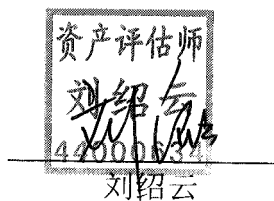 资产评估师
刘绍云
44000634
刘绍云